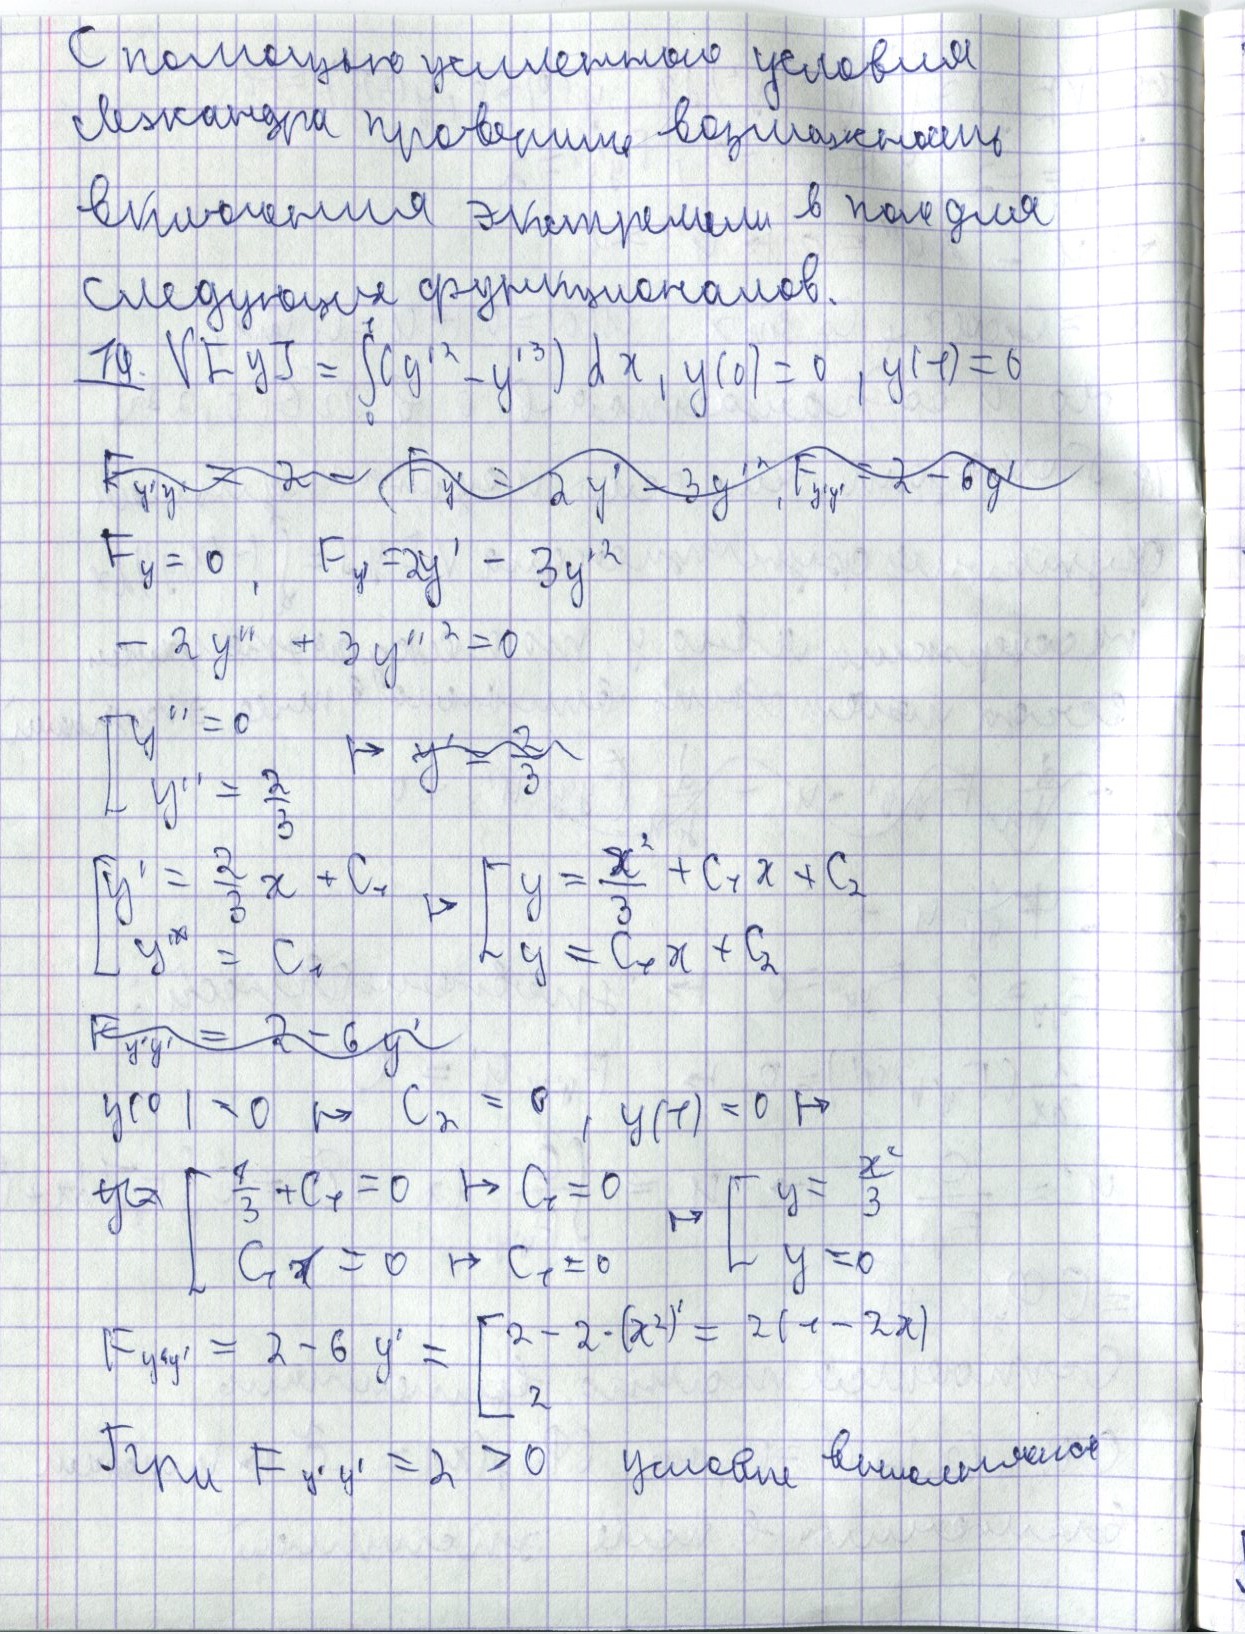 С помощью усиленного условия
Лежандра проверить возможность
включения экстремали в поле для
следующих функционалов.
19. V[y] = ∫₀¹(y'² - y'³) dx, y(0) = 0, y(1) = 0
F_y'y' = 2 - ( F_y' = 2y' - 3y'², F_y'y' = 2 - 6y'
F_y = 0, F_y' = 2y' - 3y'²
- 2y'' + 3y''² = 0
[ y'' = 0
y'' = 2/3 ↦ y' = 2/3
[ y' = 2/3 x + C₁ ↦ [ y = x²/3 + C₁x + C₂
y' = C₁ y = C₁x + C₂
F_y'y' = 2 - 6y'
y(0) = 0 ↦ C₂ = 0, y(1) = 0 ↦
[ 1/3 + C₁ = 0 ↦ C₁ = 0 ↦ [ y = x²/3
C₁ = 0 ↦ C₁ = 0 y = 0
F_y'y' = 2 - 6y' = [ 2 - 2·(x²)' = 2(1 - 2x)
2
При F_y'y' = 2 > 0 условие выполняется